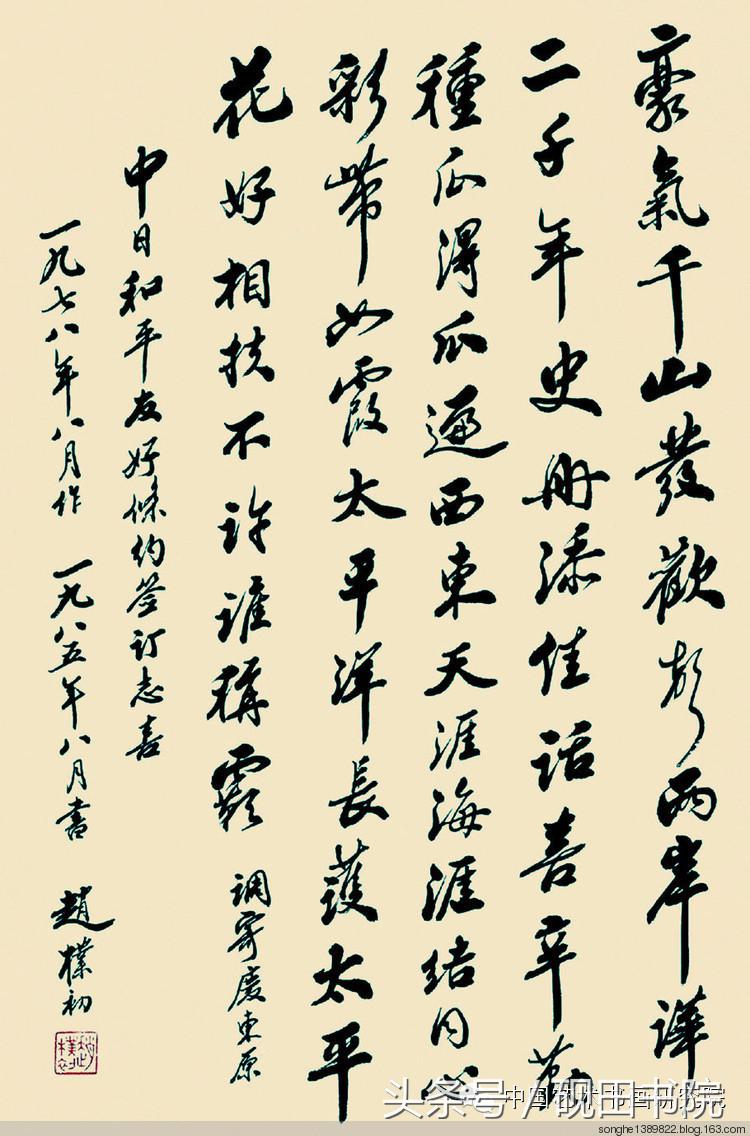 豪氣千山發歡聲兩岸譁
二千年史册添佳話喜辛勤
種瓜得瓜遍西東天涯海涯結同心
彩帶如霞太平洋長護太平
花好相扶不許誰稱霸 調寄慶東原
中日和平友好條約签订志喜
一九七八年八月作 一九八五年八月書 趙樸初
趙樸初
头条号/砚田书院
songhe1389822.blog.163.com